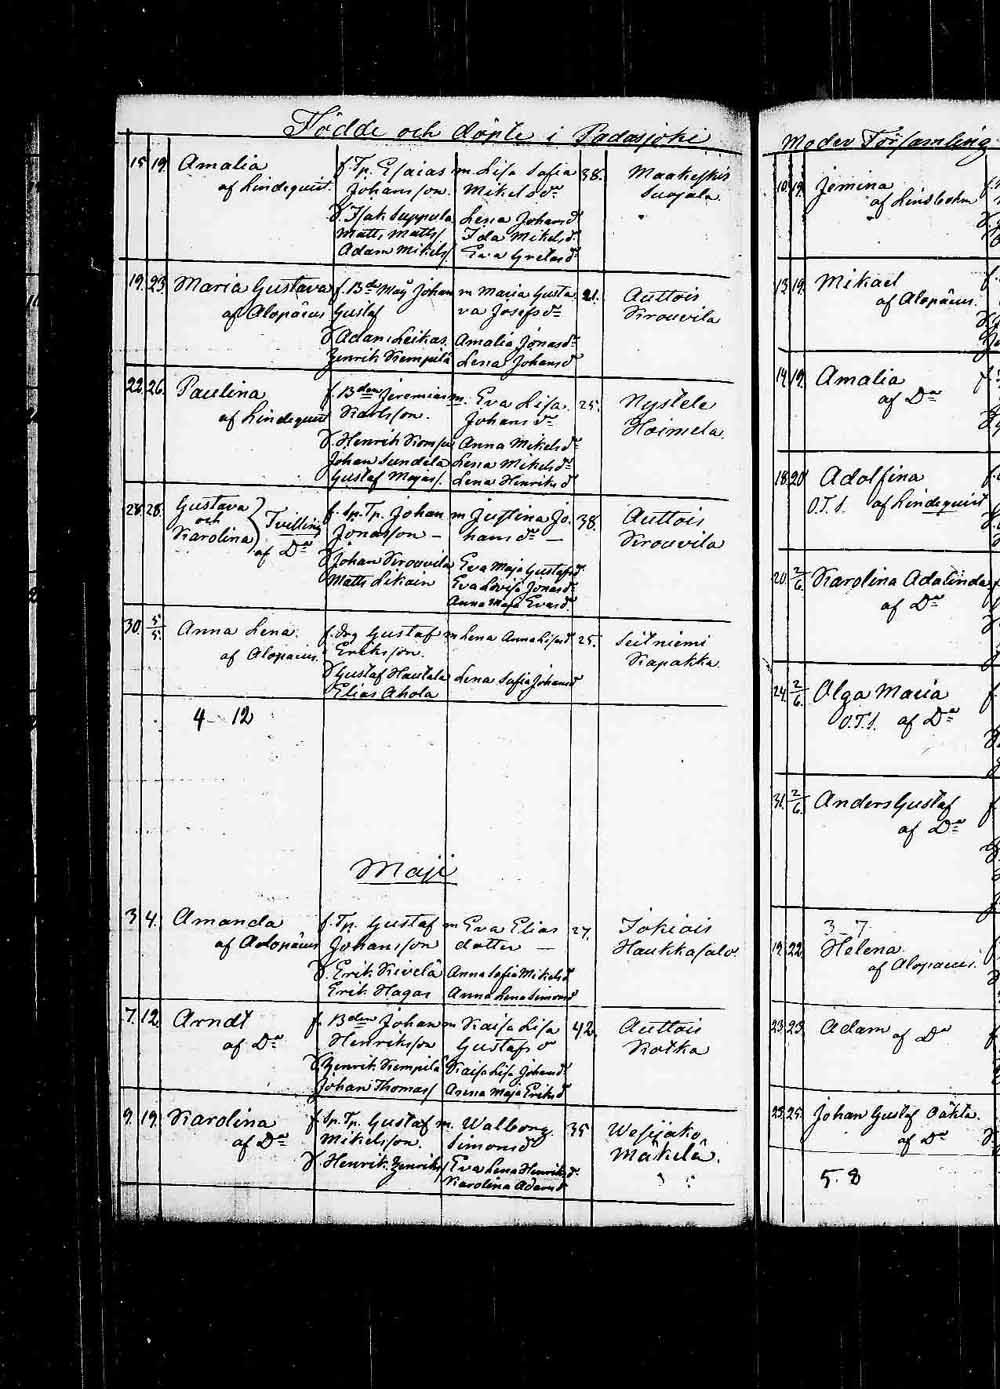 Födde och döpte i Padasjoki
15. 19. Amalia f. Tp. Esaias m. Lisa Sofia 38. Maakeskis
af Lindequist. Johansson. Mikelsdr Suojala.
F. Isak Seppula Lena Johansd.
Matts Matts/. Ida Mikelsd.
Adam Mikels/. Eva Gretasd.
19. 23. Maria Gustava f. Bde Måg Johan m Maria Gusta 21. Auttois
af Alopäus Gustaf va Josefsdr Kirouvila
F Adam Leikas Amalia Jonasdr
Henrik Kempilä Lena Johansd
22. 26. Paulina f. Bden Jeremias m. Eva Lisa 25. Nystele
af Lindequist Karlsson. Johansdr Hoimela.
F. Henrik Anna Mikelsdr
Johan Sundela Lena Mikelsdr
Gustaf Majas/. Lena Henriksd
28. 28. Gustava och Karolina Tvilling f. Sp. Tp. Johan m Justina Jo- 38. Auttois
af Do Jonasson – hansdr – Kirouvila
F Johan Kirouvila Eva Maja Gustafsd.
Matts Likain Eva Lovisa Jonasd.
Anna Maja Evasd.
30. 5/5. Anna Lena. f. Drg Gustaf m Lena Anna Lisasd 25. Seitniemi
af Alopäus. Eriksson. Kapakka
F Gustaf Hautala Lena Sofia Johansd
Elias Ahola
4 – 12
Maji
3. 4. Amanda f. Tp. Gustaf m Eva Elias 27. Jokiois
af Alopäus Johansson dotter – Haukkasalo.
F. Erik Kivelä Anna Sofia Mikelsd
Erik Hagas Anna Lena Simonsd
7. 12. Arndt f. Bden Johan m Kaisa Lisa 42. Auttois
af Do Henriksson Gustafsd Kotka
F. Henrik Kempilä Kaisa Lisa Johansd
Johan Thomas/ Anna Maja Eriksd
9. 19. Karolina f. Sp. Tp. Gustaf m. Walborg 35 Wesijako
af Do Mikelsson. Simonsd Mäkelä.
F. Henrik Henriks/ Eva Lena Henriksd.
Karolina Adamsd
Moder Församling
10. 19. Jemina
af Lindeholm
13. 19. Mikael
af Alopäus.
14. 19. Amalia
af Do
18. 20. Adolfina
O.T.S. af Lindequist
20. 2/6. Karolina Adalinda
af Do
24. 2/6. Olga Maria
O.T.S. af Do
31. 2/6. Anders Gustaf
af Do
3 – 7
19. 22. Helena
af Alopäus.
23. 23. Adam af Do
25. 25. Johan Gustaf Oäkta.
af Do
5. 8